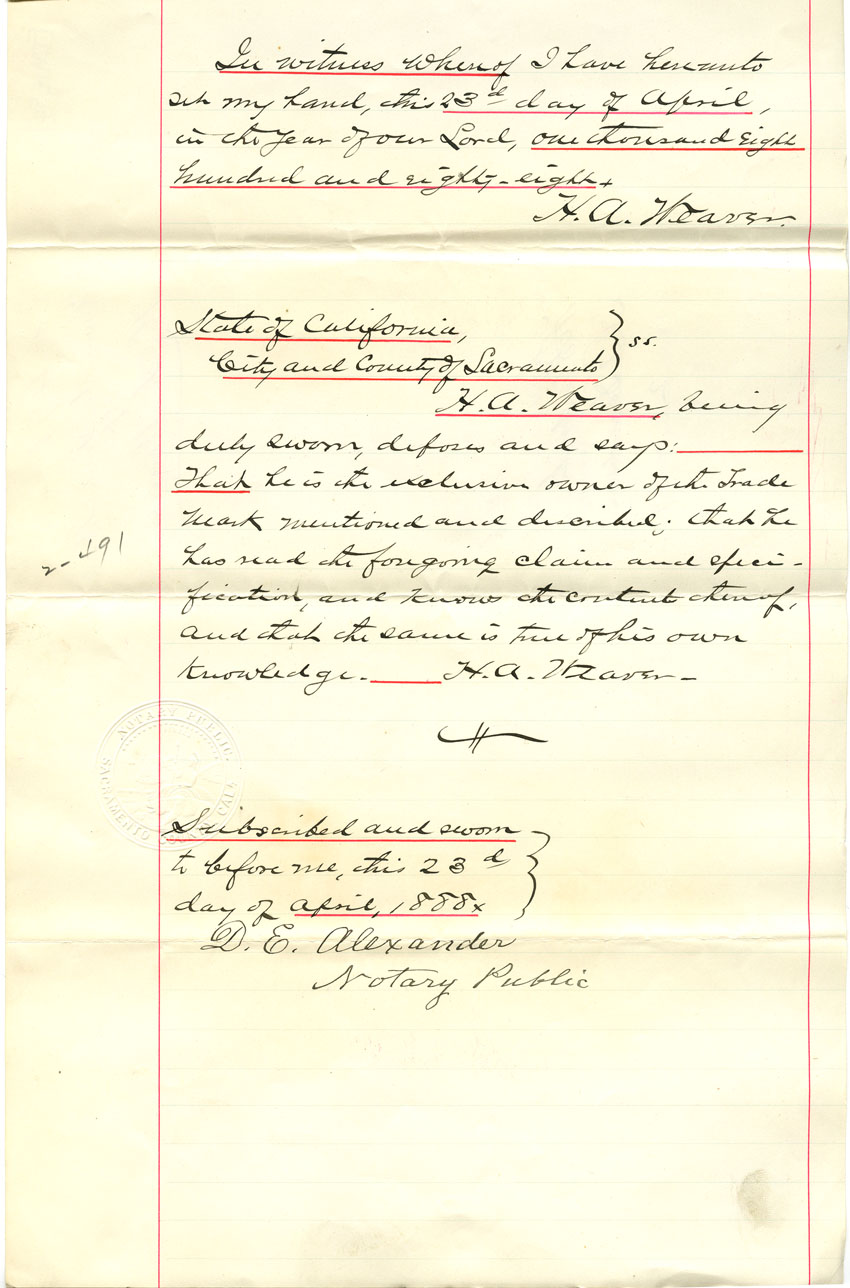 In witness whereof I have hereunto
set my hand, this 23d day of April,
in the Year of our Lord, one thousand eight
hundred and eighty-eight
H. A. Weaver.
State of California,
City and County of Sacramento } ss.
H. A. Weaver, being
duly sworn, deposes and says:
That he is the exclusive owner of the Trade
Mark mentioned and described; that he
has read the foregoing claim and speci-
fication, and knows the contents thereof,
and that the same is true of his own
2-491
knowledge. H. A. Weaver-
NOTARY PUBLIC.
SACRAMENTO COUNTY CAL.
Subscribed and sworn
to before me, this 23d
day of April, 1888x
D. E. Alexander
Notary Public